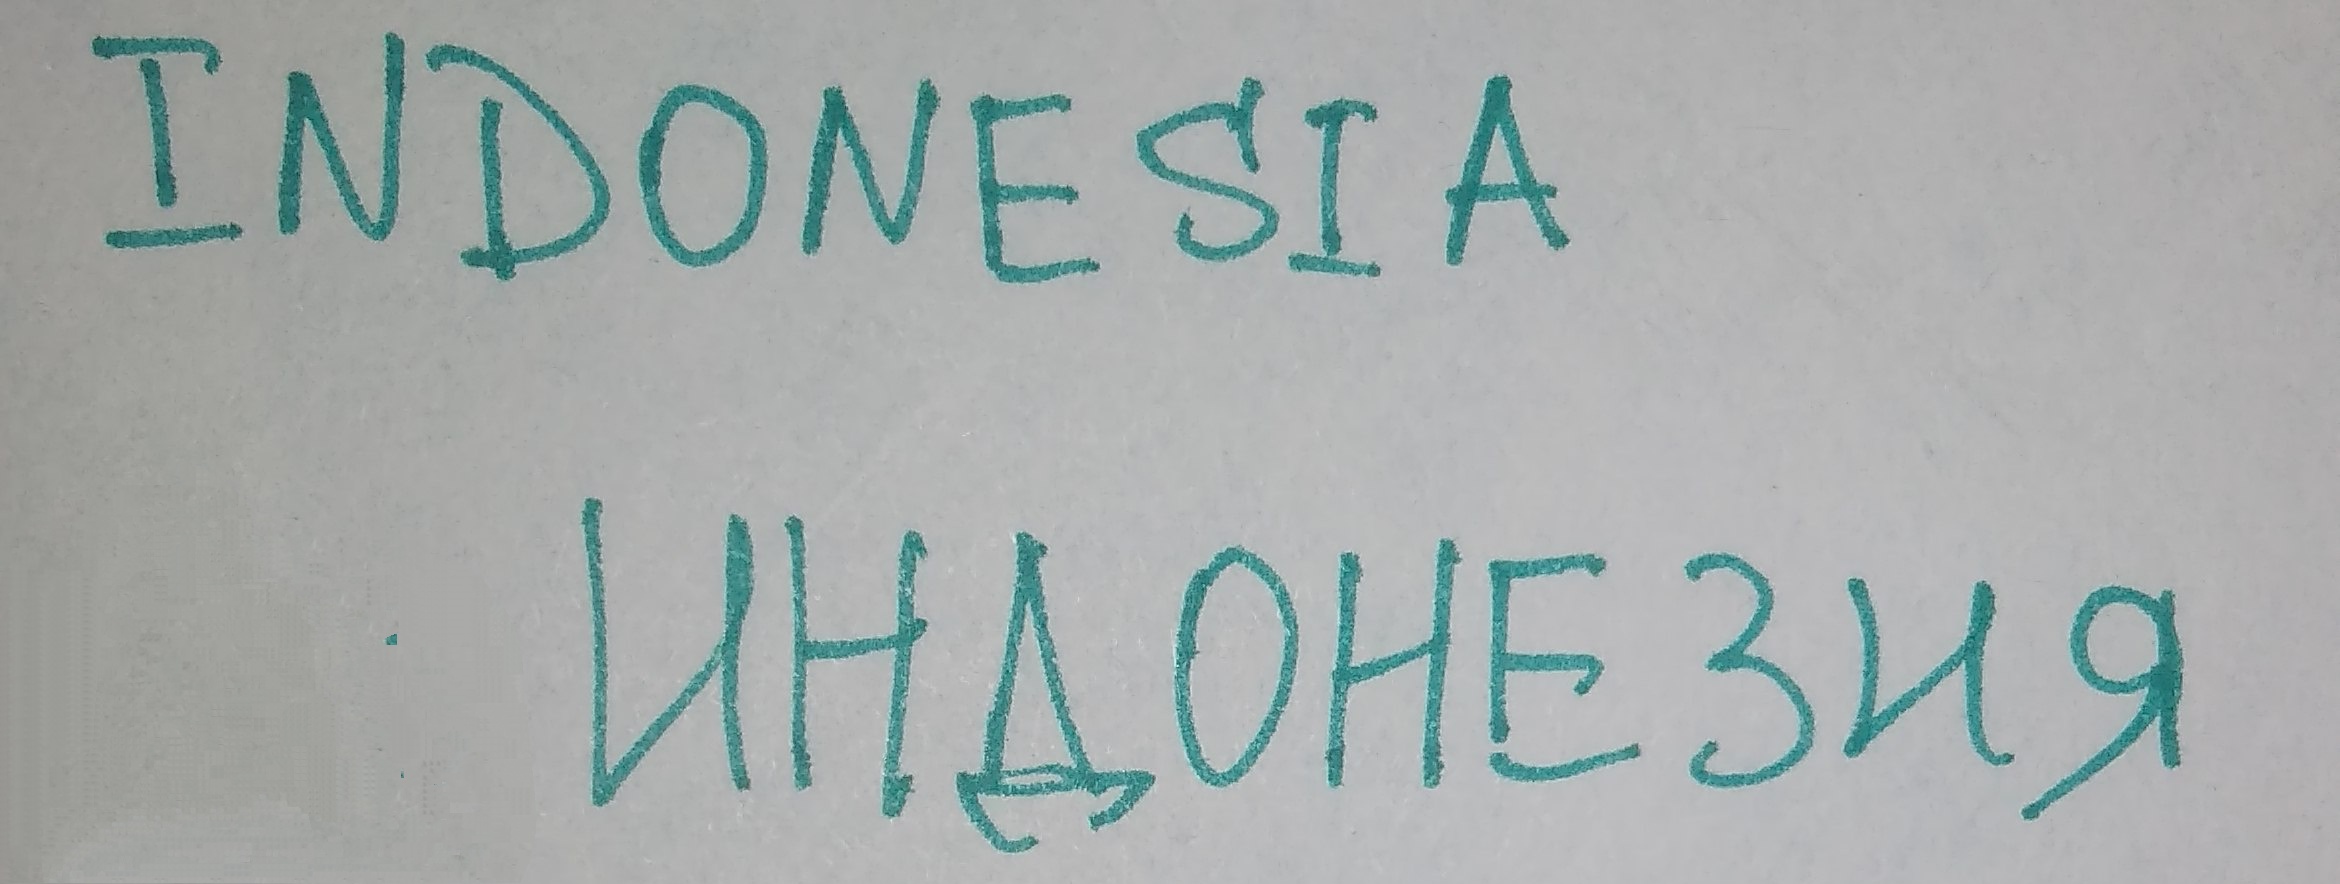 INDONESIA
ИНДОНЕЗИЯ